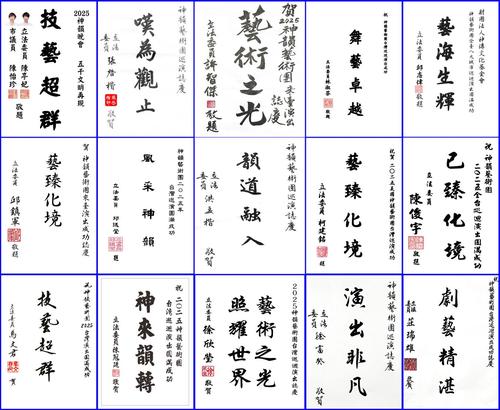 2025 神韻晚會 五千文明再現
技藝超群
立法委員 陳亭妃
市議員 陳怡珍 敬題
神韻藝術團巡演誌慶
嘆為觀止
立法委員 張啓楷 敬賀
賀2025神韻藝術團來臺演出誌慶
藝術之光
立法委員許智傑敬題
舞藝卓越
立法委員 林淑芬 敬題
財團法人神傳文化基金會
藝海生輝
立法委員 邱志偉 敬題
賀神韻藝術團來臺演出成功誌慶
藝臻化境
立法委員 邱鎮軍 敬題
神韻藝術團二〇二五年
台灣巡演圓滿成功
風采神韻
立法委員 邱議瑩
神韻藝術團巡演誌慶
韻道融入
立法委員 洪孟楷 敬賀
祝賀二〇二五年神韻藝術團台灣巡演成功
藝臻化境
立法委員 柯建銘 敬題
祝 神韻藝術團
二〇二五全台巡迴演出圓滿成功
已臻化境
立法委員 陳俊宇 敬題
技藝超群
立法委員 馬文君 賀
祝 二〇二五神韻藝術團
台灣巡迴演出圓滿成功
神來韻轉
立法委員陳冠廷 敬賀
2025神韻藝術團台灣巡演誌慶
藝術之光
照耀世界
立法委員 徐欣瑩 敬賀
神韻藝術團巡演誌慶
演出非凡
立法委員 徐富癸 敬賀
劇藝精湛
立法委員 莊瑞雄 賀